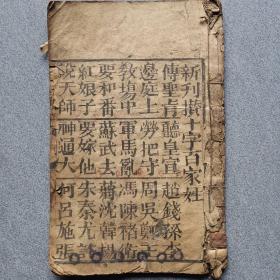 新刊攢十字百家姓
傳聖旨聽皇宣趙錢孫李
邊庭上勞把守周吳鄭王
教場中軍馬亂馮陳褚衛
要和番蘇武去蔣沈韓楊
紅娘子要嫁他朱秦尤許
天師神通大何呂施張